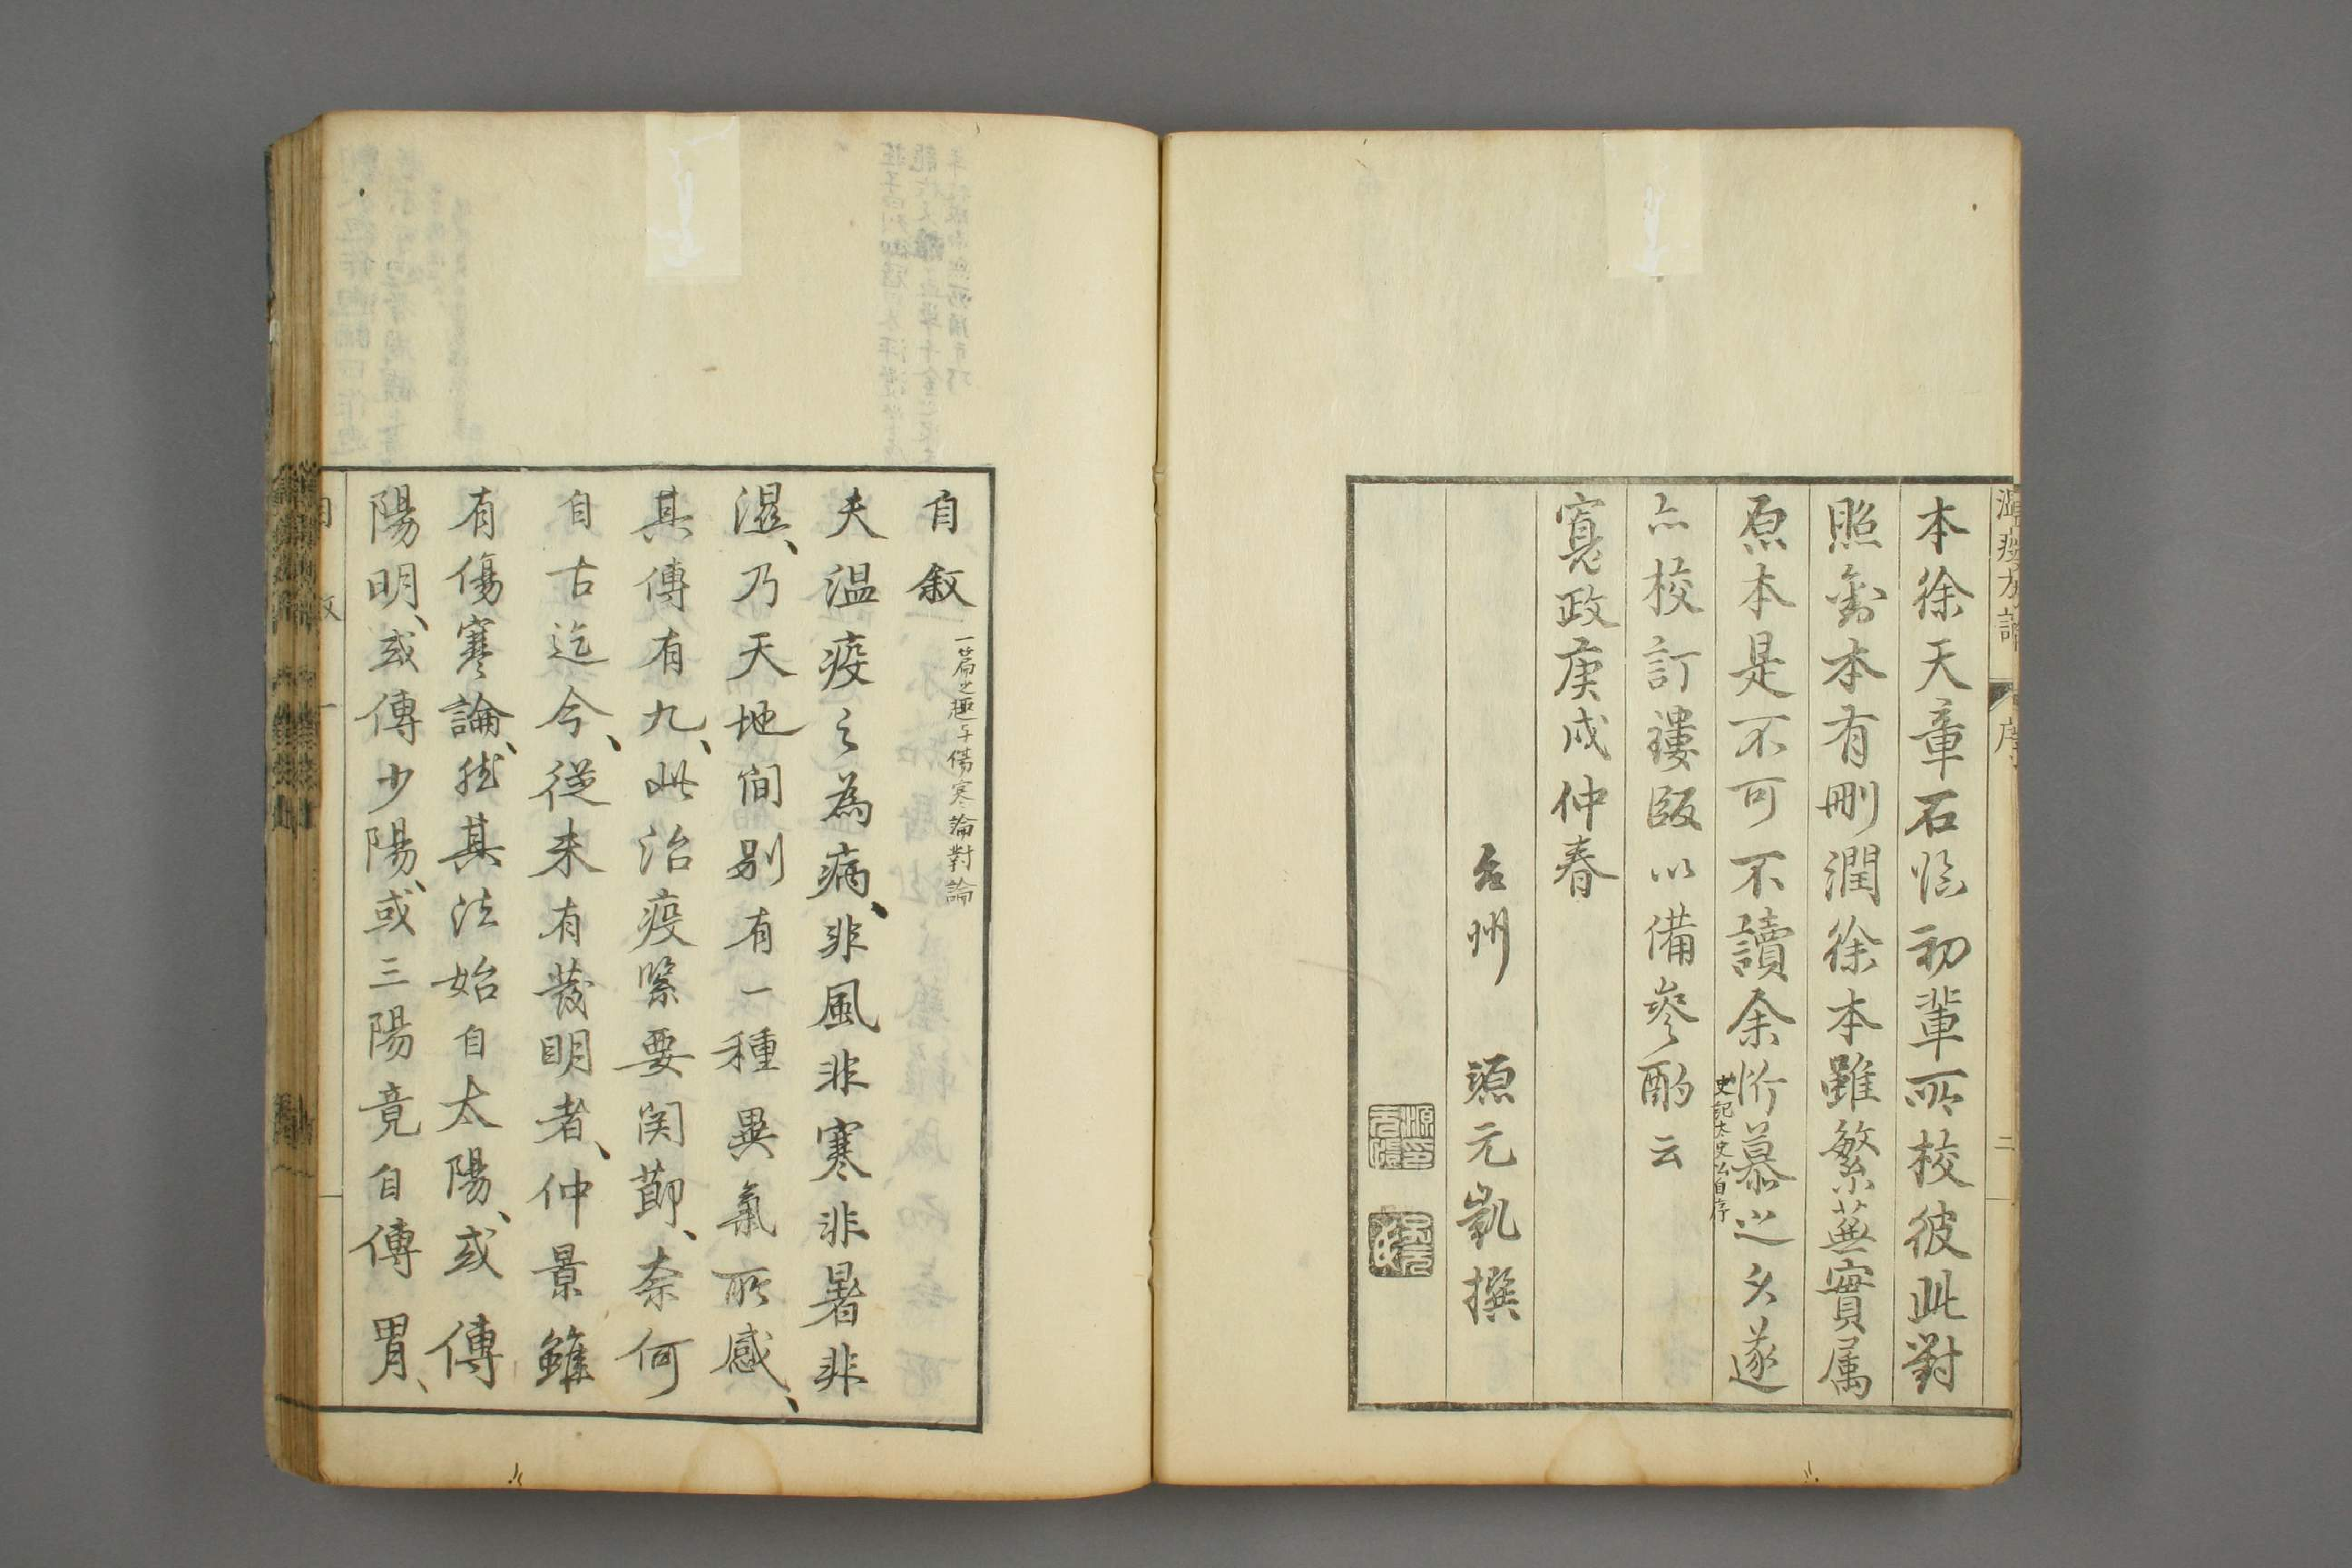 本徐天章石臨初輩所校彼此對
照劉本有刪潤徐本雖繁蕪實属
原本是不可不讀余所慕之久遂
史記太史公自序
亦校訂鏤版以備參酌云
寬政庚戌仲春
台州 源元凱撰
序
二
自敘
一篇之趣与傷寒論對論
夫温疫之為病、非風非寒非暑非
濕、乃天地間别有一種異氣所感、
其傳有九、此治疫緊要関節、奈何
自古迄今、從未有發明者、仲景雖
有傷寒論、然其法始自太陽、或傳
陽明、或傳少陽、或三陽竟自傳胃、